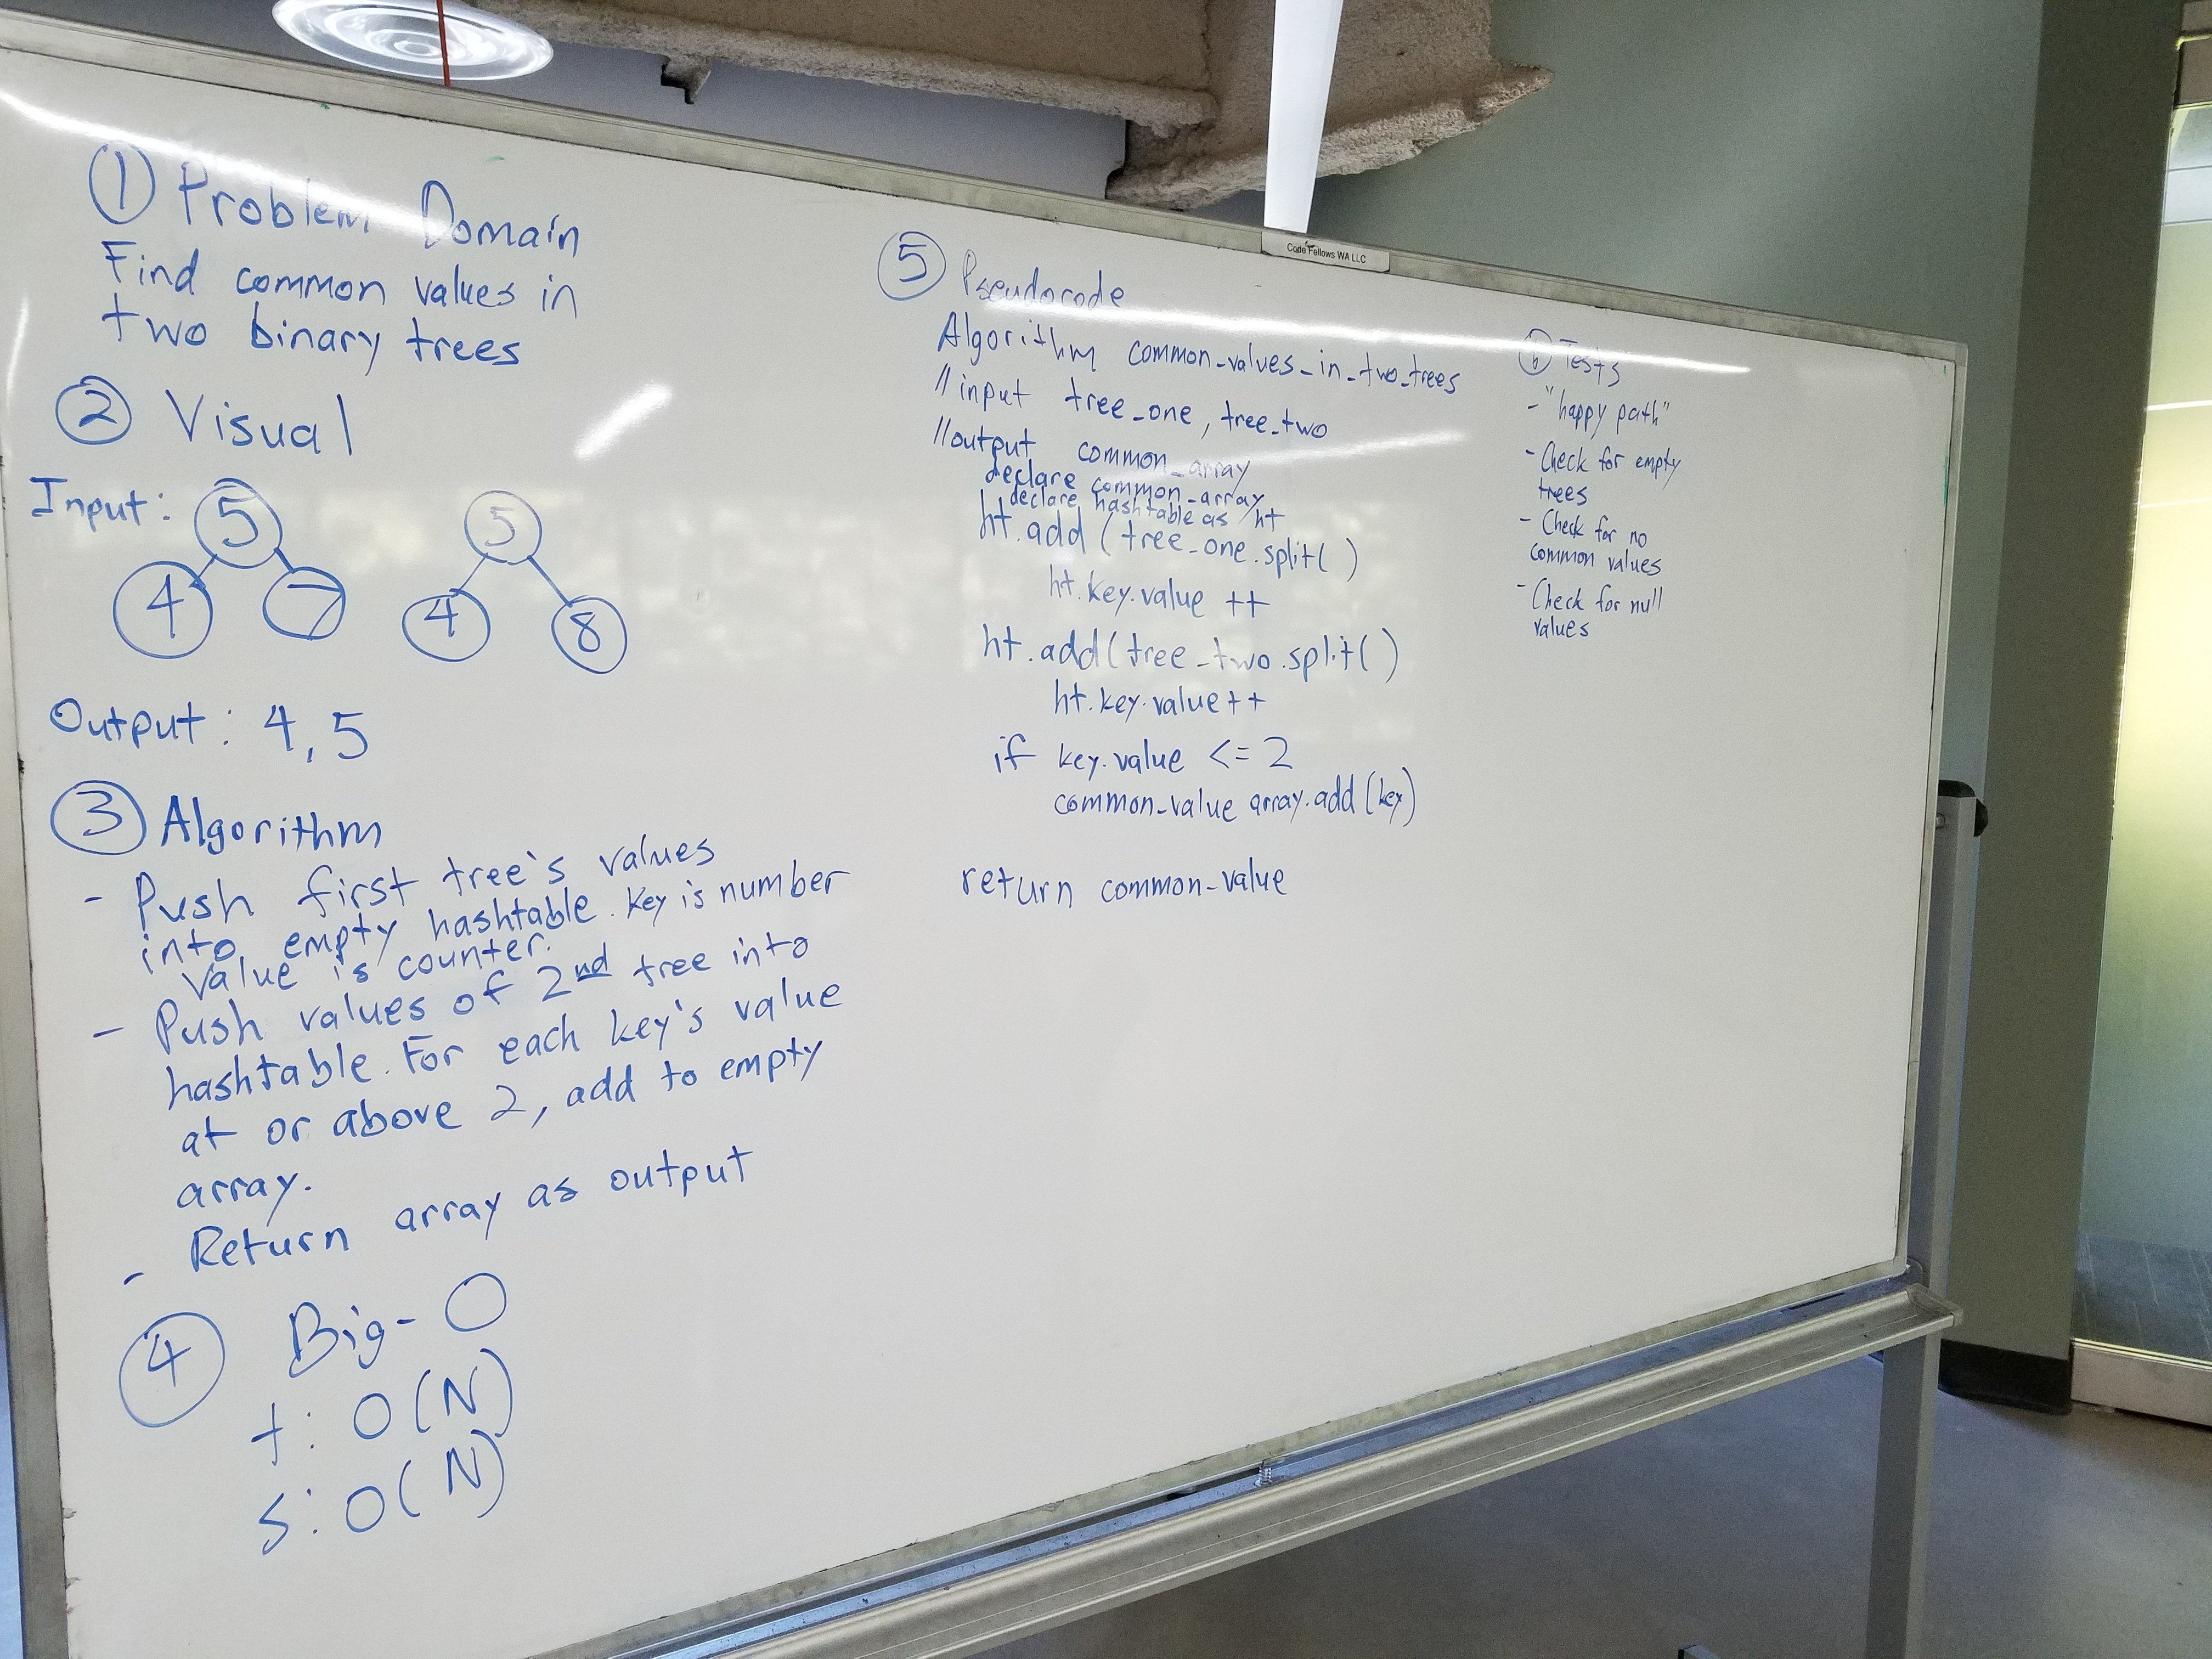 ① Problem Domain
Find common values in
two binary trees
② Visual
Input:
5
4
7
5
4
8
Output: 4, 5
③ Algorithm
- Push first tree's values
into empty hashtable. Key is number
Value is counter.
- Push values of 2nd tree into
hashtable. For each key's value
at or above 2, add to empty
array.
- Return array as output
④ Big-O
t: O(N)
s: O(N)
Code Fellows WA LLC
⑤ Pseudocode
Algorithm common_values_in_two_trees
//input tree_one, tree_two
//output common_array
declare common_array
declare hashtable as ht
ht.add(tree_one.split()
ht.key.value ++
ht.add(tree_two.split()
ht.key.value++
if key.value <= 2
common_value array.add(key)
return common-value
⑥ Tests
- "happy path"
- Check for empty
trees
- Check for no
common values
- Check for null
values